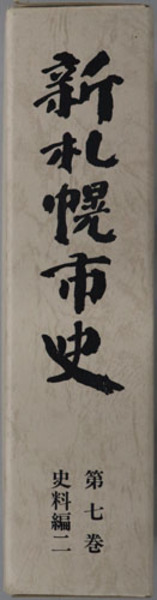 新札幌市史
第七巻
史料編二